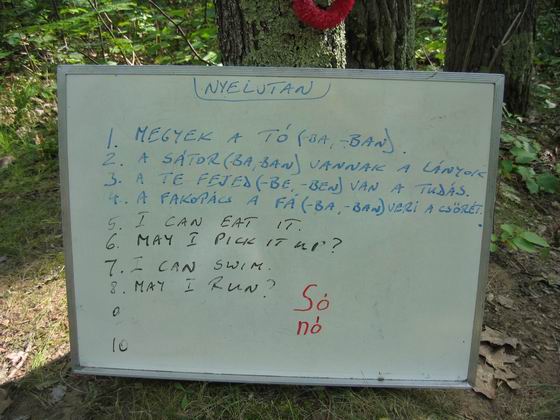 NYELVTAN
1. MEGYEK A TÓ (-BA, -BAN).
2. A SÁTOR (BA, BAN) VANNAK A LÁNYOK
3. A TE FEJED (-BE, -BEN) VAN A TUDÁS.
4. A FAKOPÁCS A FÁ (-BA, -BAN) VERI A CSŐRÉT.
5. I CAN EAT IT.
6. MAY I PICK IT UP?
7. I CAN SWIM.
8. MAY I RUN?
9
10
Só
nó